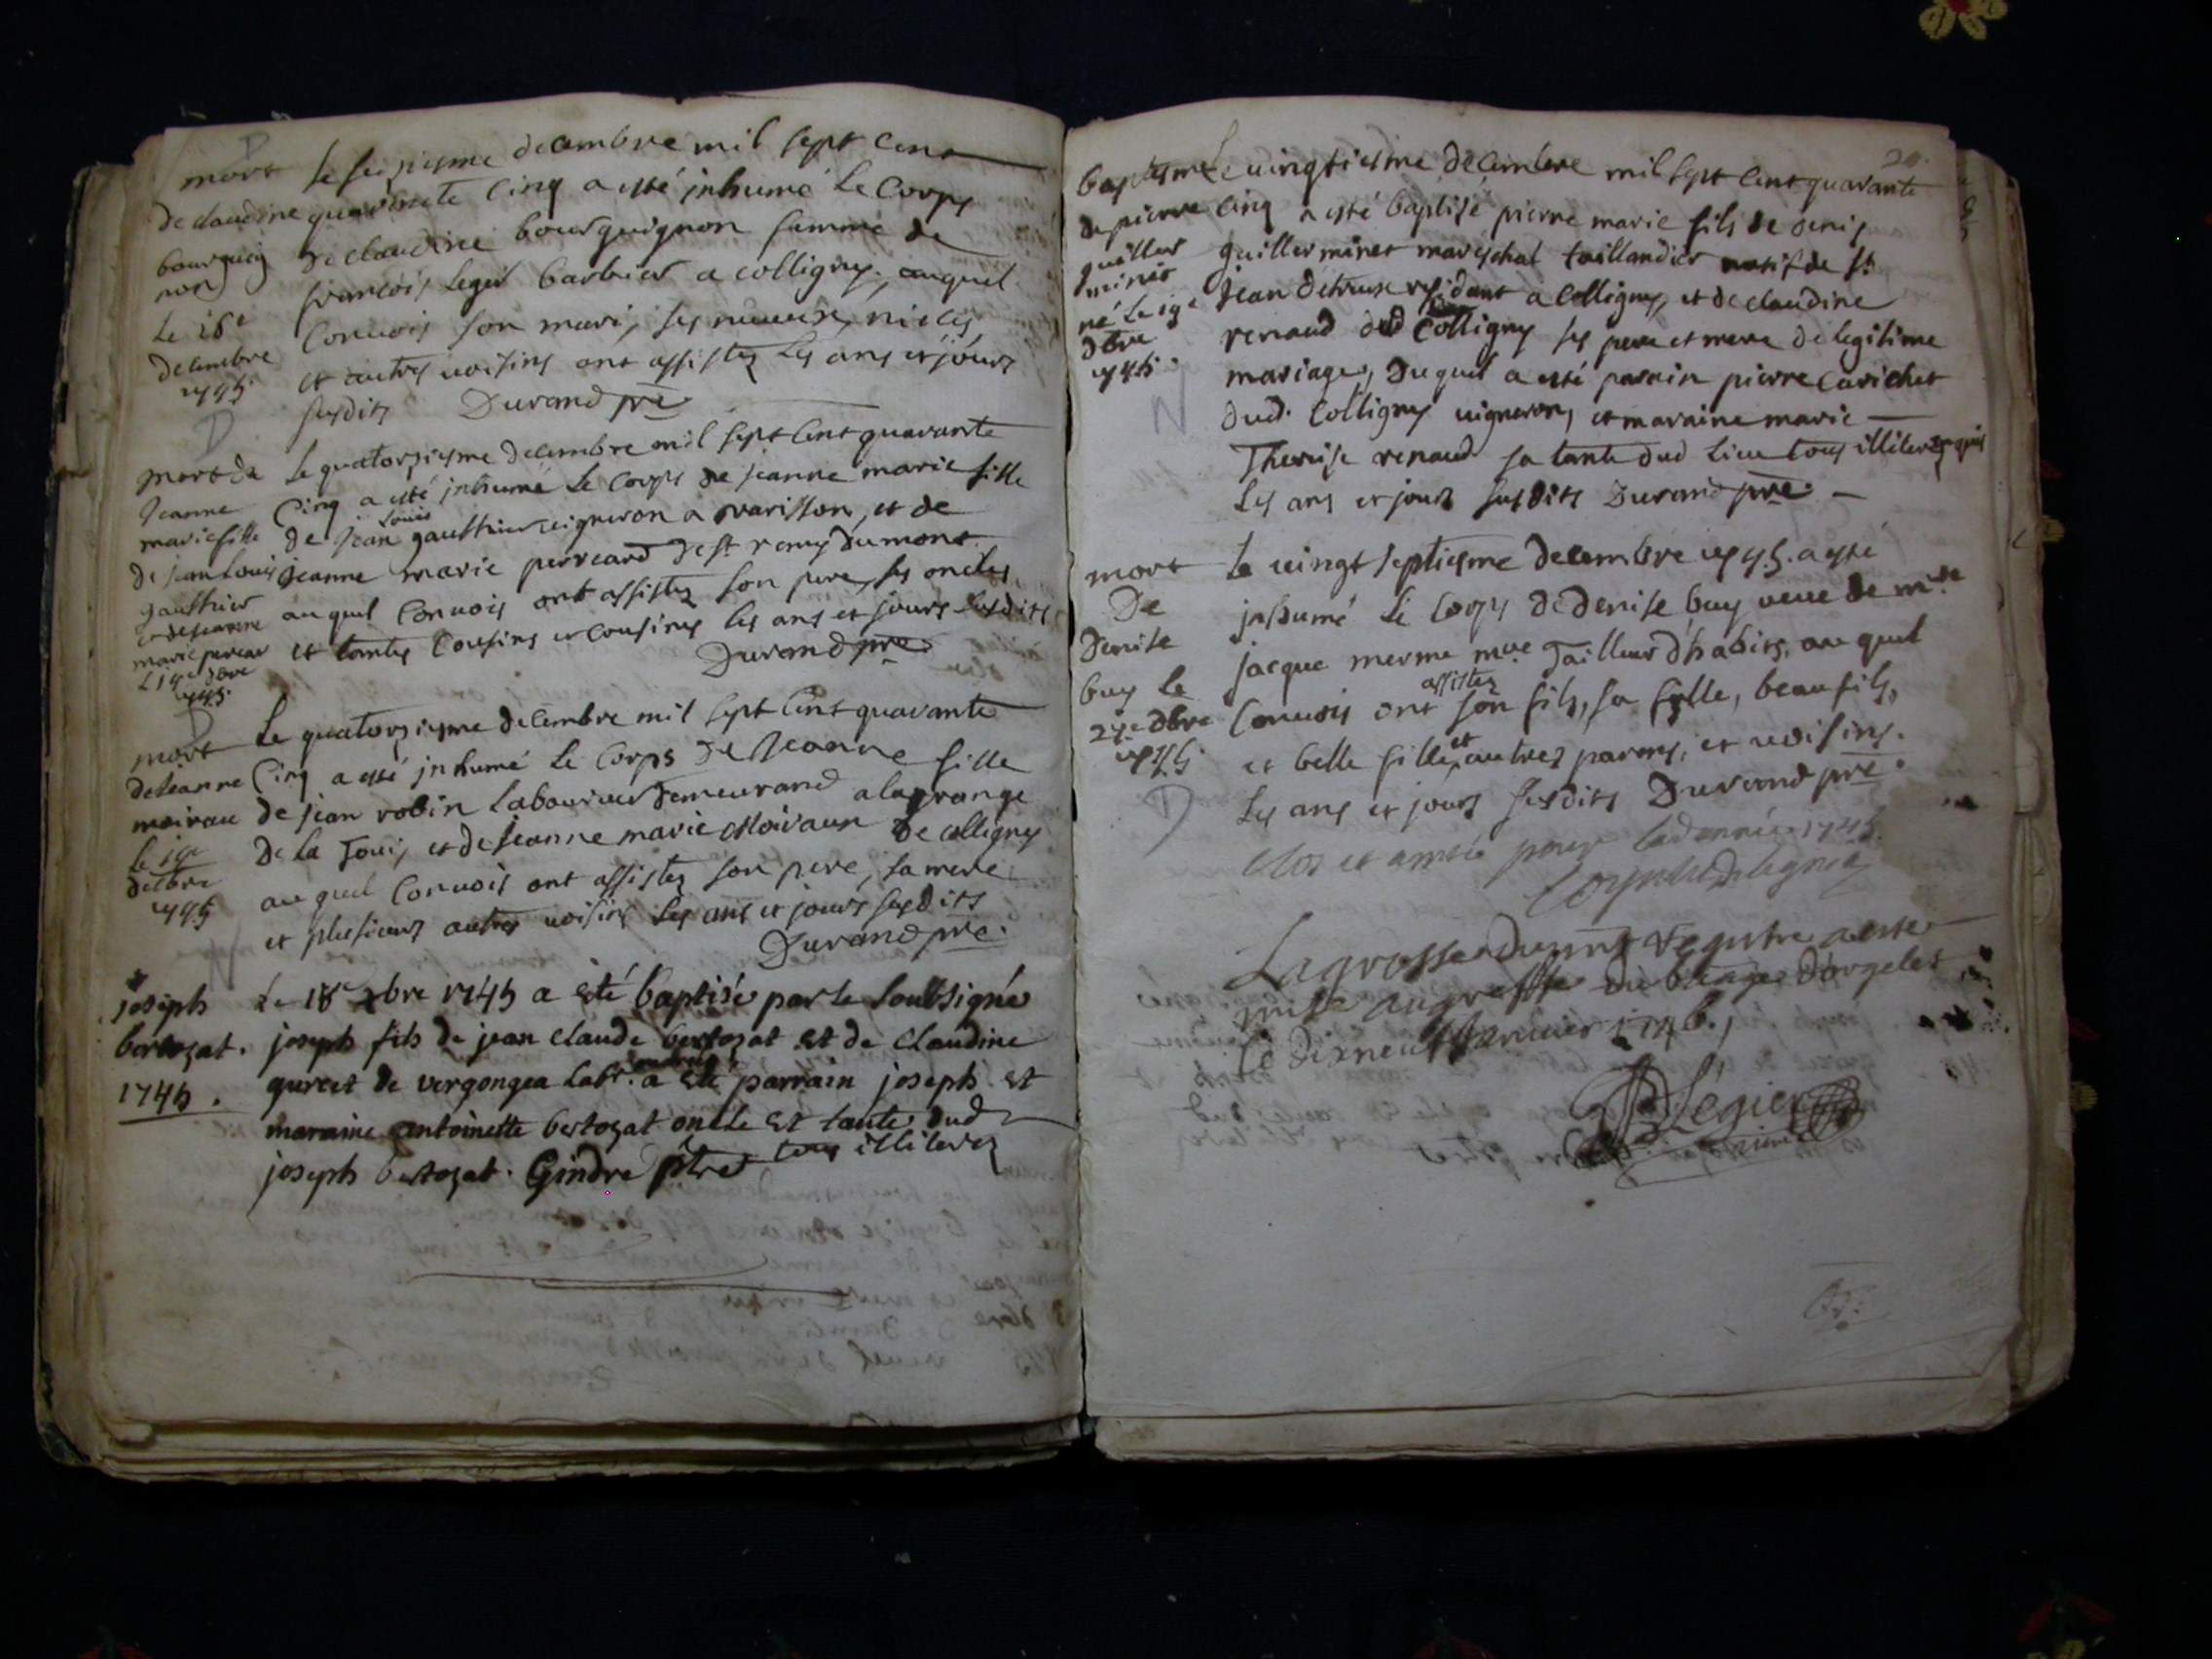 mort
de claudine
bourguig
non
Le 16e
decembre
1745
Le seiziesme decembre mil sept cent
quarante cinq a esté inhumé Le Corps
de claudine bourguignon femme de
francois Leger barbier a colligny, auquel
Convois son mari, ses nueux, nieces,
et autres uoisins ont assistez Les ans et jours
susdits Durand pre
mort de
Jeanne
marie fille
de jean Louis
gauthier
et de jeanne
marie perrear
L 14e dbre
1745.
Le quatorziesme decembre mil sept Cent quarante
Cinq a esté inhumé Le Corps de jeanne marie fille
de Jean Louis gauthier uigneron a varisson, et de
jeanne marie perreard de st remy dumont
auquel Conuois ont assistez son pere, ses oncles,
et tantes Cousins et Cousines les ans et jours susdits
Durand pre
mort
de Jeanne
moirau
le 14e
decbre
1745
Le quatorziesme decembre mil sept Cent quarante
Cinq a esté inhumé Le Corps de Jeanne fille
de jean robin Laboureur demeurand a lagrange
de La Toui, et de jeanne marie Moiraux de colligny
au quel Conuois ont assistez son pere, sa mere
et plusieurs autres uoisins Les ans et jours susdits
Durand pre.
joseph
bertozat.
1745.
Le 18e xbre 1745 a eté baptisé par le soubsigné
joseph fils de jean claude bertozat et de Claudine
gureet de vergongea labr. a eté parrain joseph et
maraine antoinette bertozat oncle et tante dud
joseph bertozat. Gindre ptre tous illiterez
24.
baptesme
de pierre
guiller
minet
né le 19e
dbre
1745.
Le uingtiesme decembre mil sept Cent quarante
Cinq a esté baptisé pierre marie fils de denis
guillerminet mareschal taillandier natif de st
Jean détreux residant a Colligny, et de claudine
renaud dud Colligny ses pere et mere de legitime
mariage, Duquel a esté parain pierre Carichet
dud. Colligny uigneron, et maraine marie
Therese renaud sa tante dud Lieu tous illiterez
Les ans et jours susdits Durand pre.
mort
De
Denise
buy le
27e dbre
1745
Le uingt septiesme decembre 1745. a esté
inhumé Le Corps de denise buy veue de
jacque merme mre Tailleur d'habits, au quel
Conuois ont assistez son fils, sa fille, beaufils,
et belle fille, et autres parens, et uoisins.
Les ans et jours susdits Durand pre.
Clos et arreté pour lad année 1745.
La grosse du present registre a esté
mise au greffe du bliage d'orgelet
le dixneuf Januier 1746.
Légier